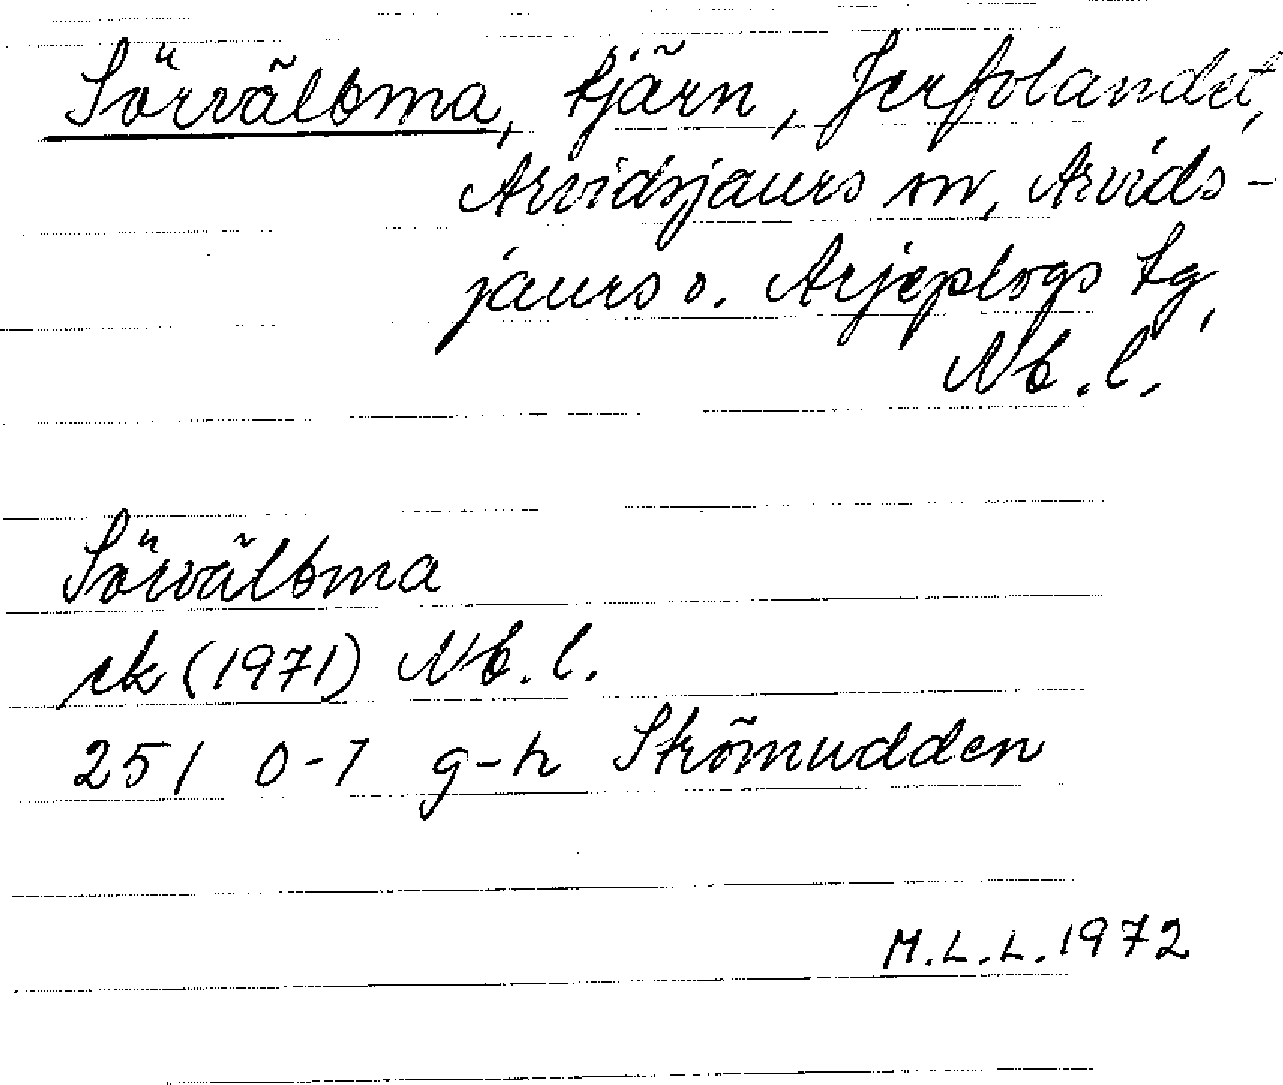 Sörvälbma, tjärn, Jerfolandet,
Arvidsjaurs sn, Arvids-
jaurs o. Arjeplogs tg,
Nb.l.
Sörvälbma
rk (1971) Nb.l.
25 I 0-1 g-h Strömudden
M.L.L. 1972